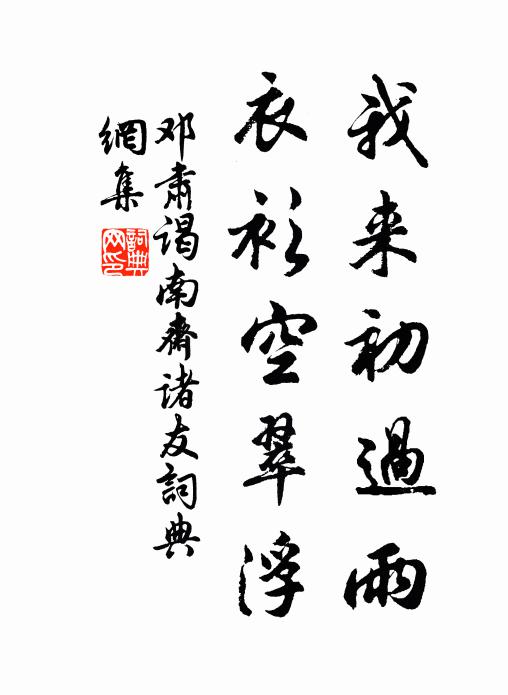 我来初過雨
衣衫空翠浮
邓肃谒南齋诸友詞典
網集
詞典網印